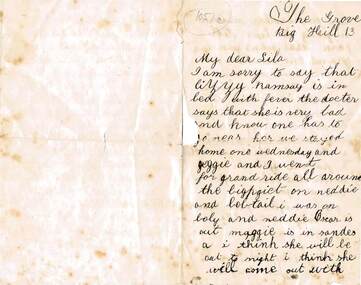 The Grove
Big Hill 13
My dear Lila
I am sorry to say that
Ramsay is in
bed with fever the docter
says that she is very bad
and know one has to
go near her we stayed
home one wednesday and
and I went
for grand ride all around
the on neddie
and bobtail i was on
boby and neddie Oscar is
out maggie is in
a i think she will be
out to night i think she
well come out with